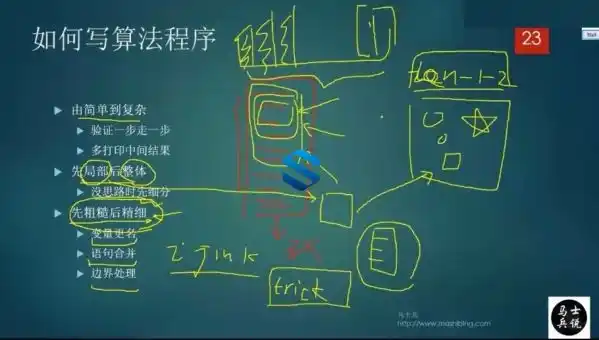 如何写算法程序
23
由简单到复杂
验证一步走一步
多打印中间结果
先局部后整体
没思路时先细分
先粗糙后精细
变量更名
语句合并
边界处理
i j m k
trick
n-1-2
马士兵
http://www.mashibing.com
马士
兵说